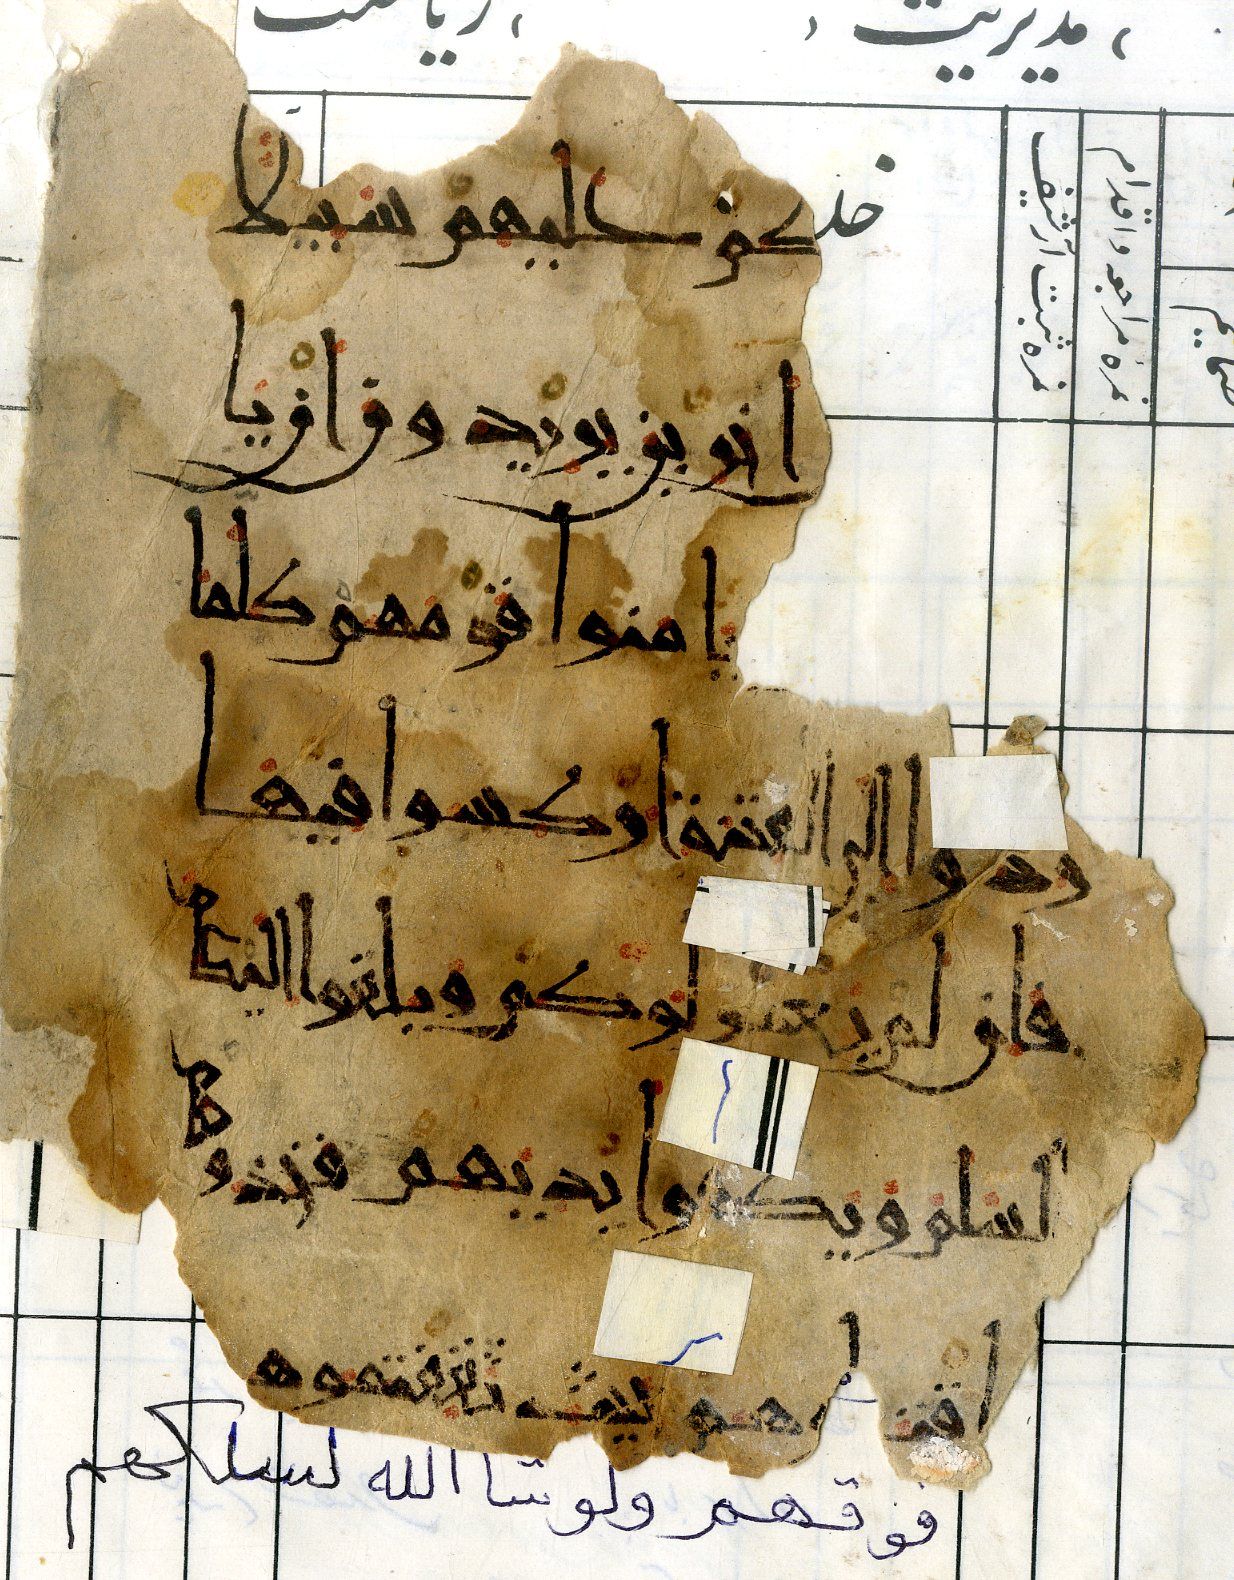 ، مدیریت ، ریاست
نمره ثبت آرشیف
نمره مراجعه واقدام
ضمایم
لكم عليهم سبيلا
اخرين يريدون ان يا
يامنوا قومهم كلما
ردوا الى الفتنة اركسوا فيها
فان لم يعتزلوكم ويلقوا اليكم
السلم ويكفوا ايديهم فخذوهم
اقتلوهم حيث ثقفتموهم
فوقهم ولو شا الله لسلطهم